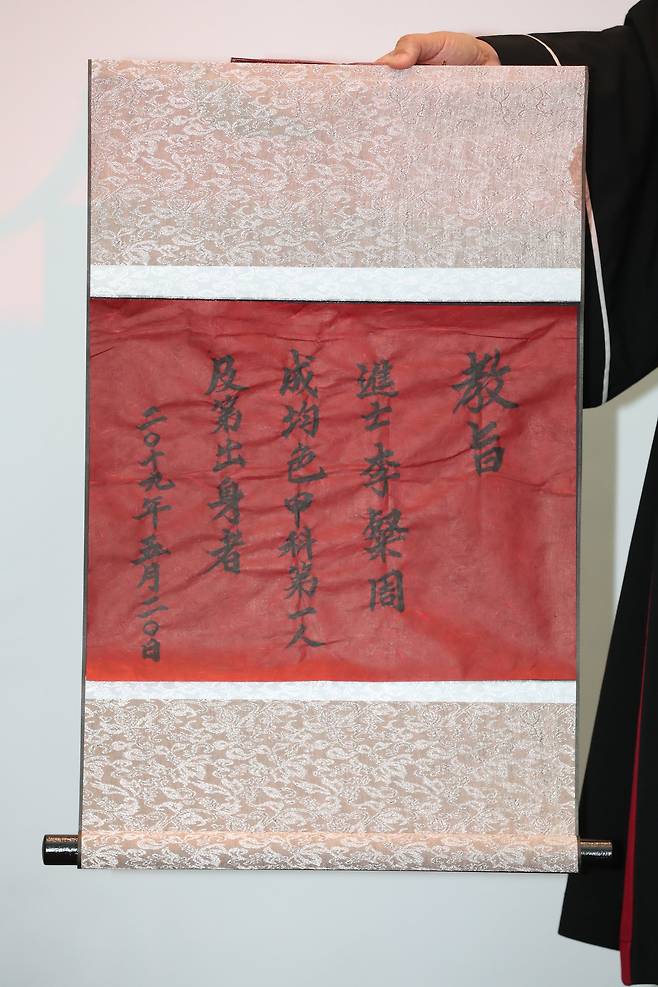 教旨
進士李粲周
成均色甲科第一人
及第出身者
二〇十九年五月二〇日